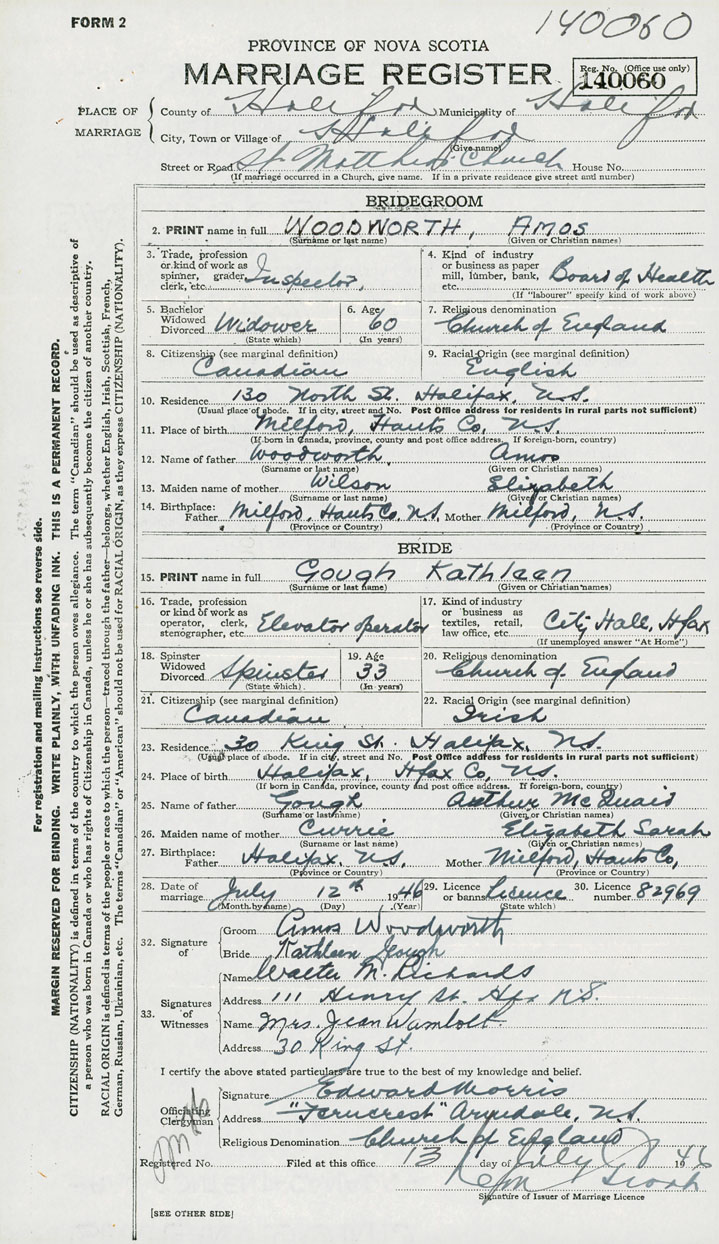 FORM 2
140060
PROVINCE OF NOVA SCOTIA
MARRIAGE REGISTER
Reg. No. (Office use only)
140060
PLACE OF MARRIAGE
County of Halifax Municipality of Halifax
City, Town or Village of Halifax
(Give name)
Street or Road St. Matthew Church House No.
(If marriage occurred in a Church, give name. If in a private residence give street and number)
BRIDEGROOM
2. PRINT name in full WOODWORTH, AMOS
(Surname or last name) (Given or Christian names)
3. Trade, profession or kind of work as spinner, grader, clerk, etc. Inspector,
4. Kind of industry or business as paper mill, lumber, bank, etc. Board of Health
(If "labourer" specify kind of work above)
5. Bachelor Widowed Divorced Widower
(State which)
6. Age 60
(In years)
7. Religious denomination
Church of England
8. Citizenship (see marginal definition)
Canadian
9. Racial Origin (see marginal definition)
English
10. Residence 130 North St. Halifax, N.S.
(Usual place of abode. If in city, street and No. Post Office address for residents in rural parts not sufficient)
11. Place of birth Milford, Hants Co, N.S.
(If born in Canada, province, county and post office address. If foreign-born, country)
12. Name of father Woodworth, Amos
(Surname or last name) (Given or Christian names)
13. Maiden name of mother Wilson Elizabeth
(Surname or last name) (Given or Christian names)
14. Birthplace: Father Milford, Hants Co. N.S, Mother Milford, N.S.
(Province or Country) (Province or Country)
BRIDE
15. PRINT name in full Gough Kathleen
(Surname or last name) (Given or Christian names)
16. Trade, profession or kind of work as operator, clerk, stenographer, etc. Elevator operator
17. Kind of industry or business as textiles, retail, law office, etc. City Hall, Hfax
(If unemployed answer "At Home")
18. Spinster Widowed Divorced Spinster
(State which)
19. Age 33
(In years)
20. Religious denomination
Church of England
21. Citizenship (see marginal definition)
Canadian
22. Racial Origin (see marginal definition)
Irish
23. Residence 30 King St. Halifax, N.S.
(Usual place of abode. If in city, street and No. Post Office address for residents in rural parts not sufficient)
24. Place of birth Halifax, Hfax Co, N.S.
(If born in Canada, province, county and post office address. If foreign-born, country)
25. Name of father Gough Arthur McQuaid
(Surname or last name) (Given or Christian names)
26. Maiden name of mother Currie Elizabeth Sarah
(Surname or last name) (Given or Christian names)
27. Birthplace: Father Halifax, N.S. Mother Milford, Hants Co,
(Province or Country) (Province or Country)
28. Date of marriage July 12th 1946
(Month by name) (Day) (Year)
29. Licence or banns Licence
(State which)
30. Licence number 82969
32. Signature of
Groom Amos Woodworth
Bride Kathleen Gough
33. Signatures of Witnesses
Name Walter M. Richards
Address 111 Henry St. Hfx N.S.
Name Mrs. Jean Wambolt
Address 30 King St.
I certify the above stated particulars are true to the best of my knowledge and belief.
Officiating Clergyman
Signature Edward Morris
Address "Ferncrest" Armdale, N.S.
Religious Denomination Church of England
Registered No. Filed at this office 13 day of July 1946
Signature of Issuer of Marriage Licence
[SEE OTHER SIDE]
For registration and mailing instructions see reverse side.
MARGIN RESERVED FOR BINDING. WRITE PLAINLY, WITH UNFADING INK. THIS IS A PERMANENT RECORD.
CITIZENSHIP (NATIONALITY) is defined in terms of the country to which the person owes allegiance. The term "Canadian" should be used as descriptive of
a person who was born in Canada or who has rights of Citizenship in Canada, unless he or she has subsequently become the citizen of another country.
RACIAL ORIGIN is defined in terms of the people or race to which the person—traced through the father—belongs, whether English, Irish, Scottish, French,
German, Russian, Ukrainian, etc. The terms "Canadian" or "American" should not be used for RACIAL ORIGIN, as they express CITIZENSHIP (NATIONALITY).